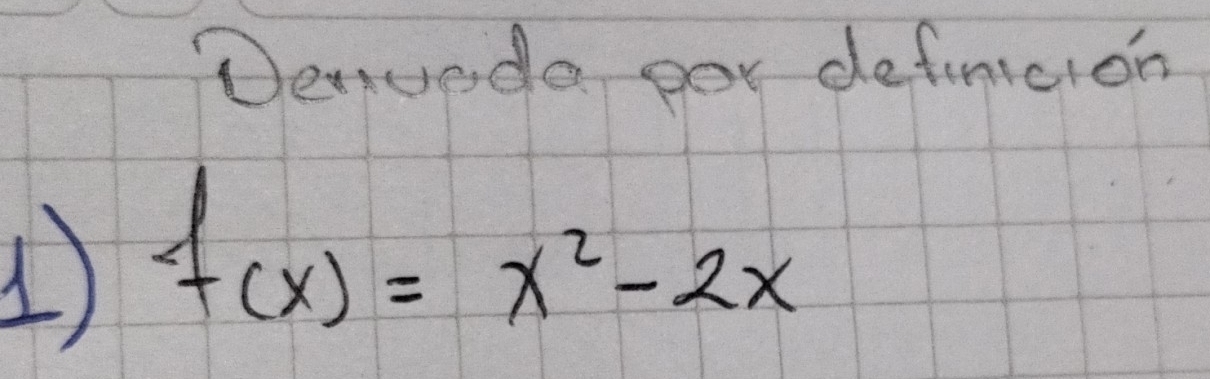 Derivada por definición
1) f(x) = x² - 2x